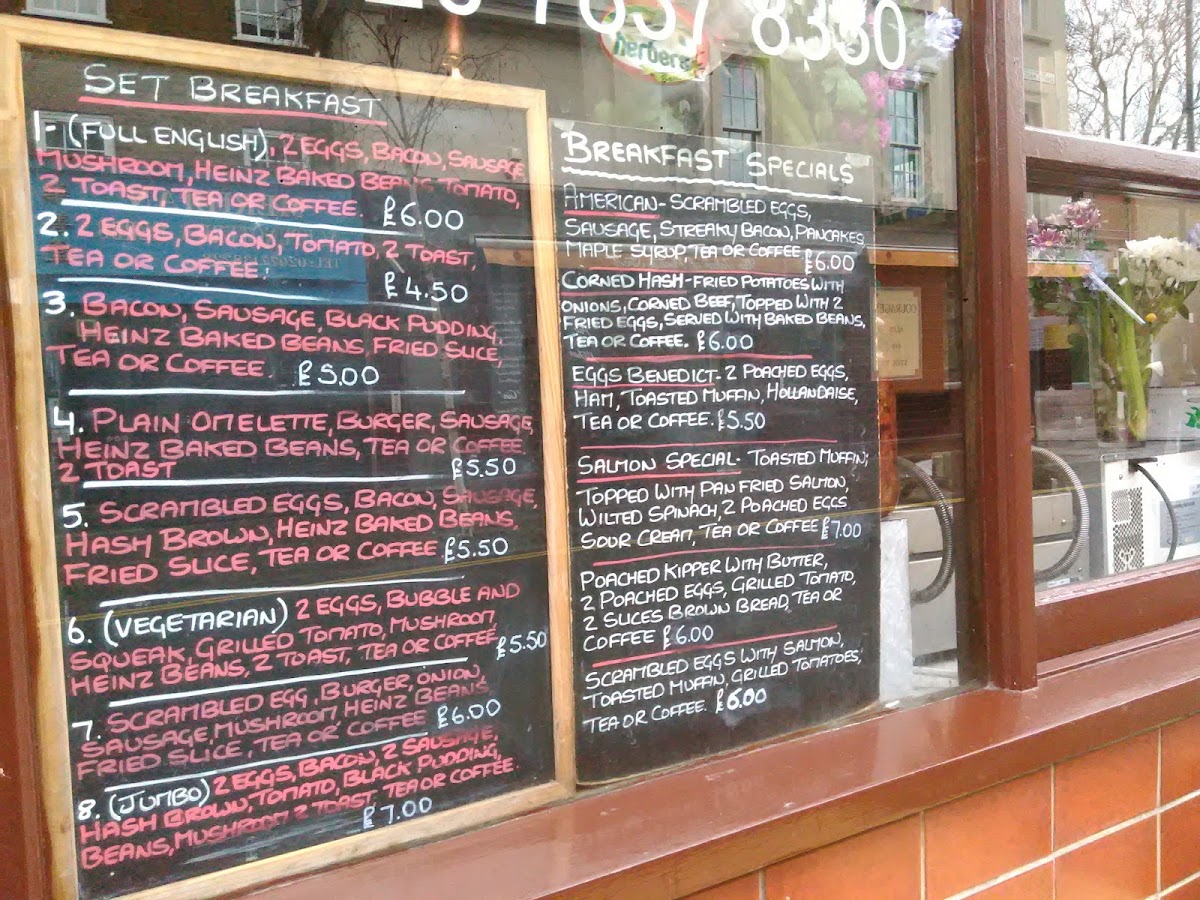 7837 8330
herbers
SET BREAKFAST
1- (FULL ENGLISH), 2 EGGS, BACON, SAUSAGE
MUSHROOM, HEINZ BAKED BEANS TOMATO,
2 TOAST, TEA OR COFFEE. £6.00
2. 2 EGGS, BACON, TOMATO, 2 TOAST,
TEA OR COFFEE. £4.50
3. BACON, SAUSAGE, BLACK PUDDING,
HEINZ BAKED BEANS, FRIED SLICE,
TEA OR COFFEE. £5.00
4. PLAIN OMELETTE, BURGER, SAUSAGE,
HEINZ BAKED BEANS, TEA OR COFFEE
2 TOAST £5.50
5. SCRAMBLED EGGS, BACON, SAUSAGE,
HASH BROWN, HEINZ BAKED BEANS,
FRIED SLICE, TEA OR COFFEE £5.50
6. (VEGETARIAN) 2 EGGS, BUBBLE AND
SQUEAK, GRILLED TOMATO, MUSHROOM
HEINZ BEANS, 2 TOAST, TEA OR COFFEE £5.50
7. SCRAMBLED EGG, BURGER, ONION,
SAUSAGE, MUSHROOM HEINZ BEANS,
FRIED SLICE, TEA OR COFFEE £6.00
8. (JUMBO) 2 EGGS, BACON, 2 SAUSAGE,
HASH BROWN, TOMATO, BLACK PUDDING,
BEANS, MUSHROOM 2 TOAST, TEA OR COFFEE.
£7.00
BREAKFAST SPECIALS
AMERICAN- SCRAMBLED EGGS,
SAUSAGE, STREAKY BACON, PANCAKES
MAPLE SYRUP, TEA OR COFFEE £6.00
CORNED HASH- FRIED POTATOES WITH
ONIONS, CORNED BEEF, TOPPED WITH 2
FRIED EGGS, SERVED WITH BAKED BEANS,
TEA OR COFFEE. £6.00
EGGS BENEDICT- 2 POACHED EGGS,
HAM, TOASTED MUFFIN, HOLLANDAISE,
TEA OR COFFEE. £5.50
SALMON SPECIAL- TOASTED MUFFIN;
TOPPED WITH PAN FRIED SALMON,
WILTED SPINACH, 2 POACHED EGGS
SOUR CREAM, TEA OR COFFEE £7.00
POACHED KIPPER WITH BUTTER,
2 POACHED EGGS, GRILLED TOMATO,
2 SLICES BROWN BREAD, TEA OR
COFFEE £6.00
SCRAMBLED EGGS WITH SALMON,
TOASTED MUFFIN, GRILLED TOMATOES,
TEA OR COFFEE. £6.00